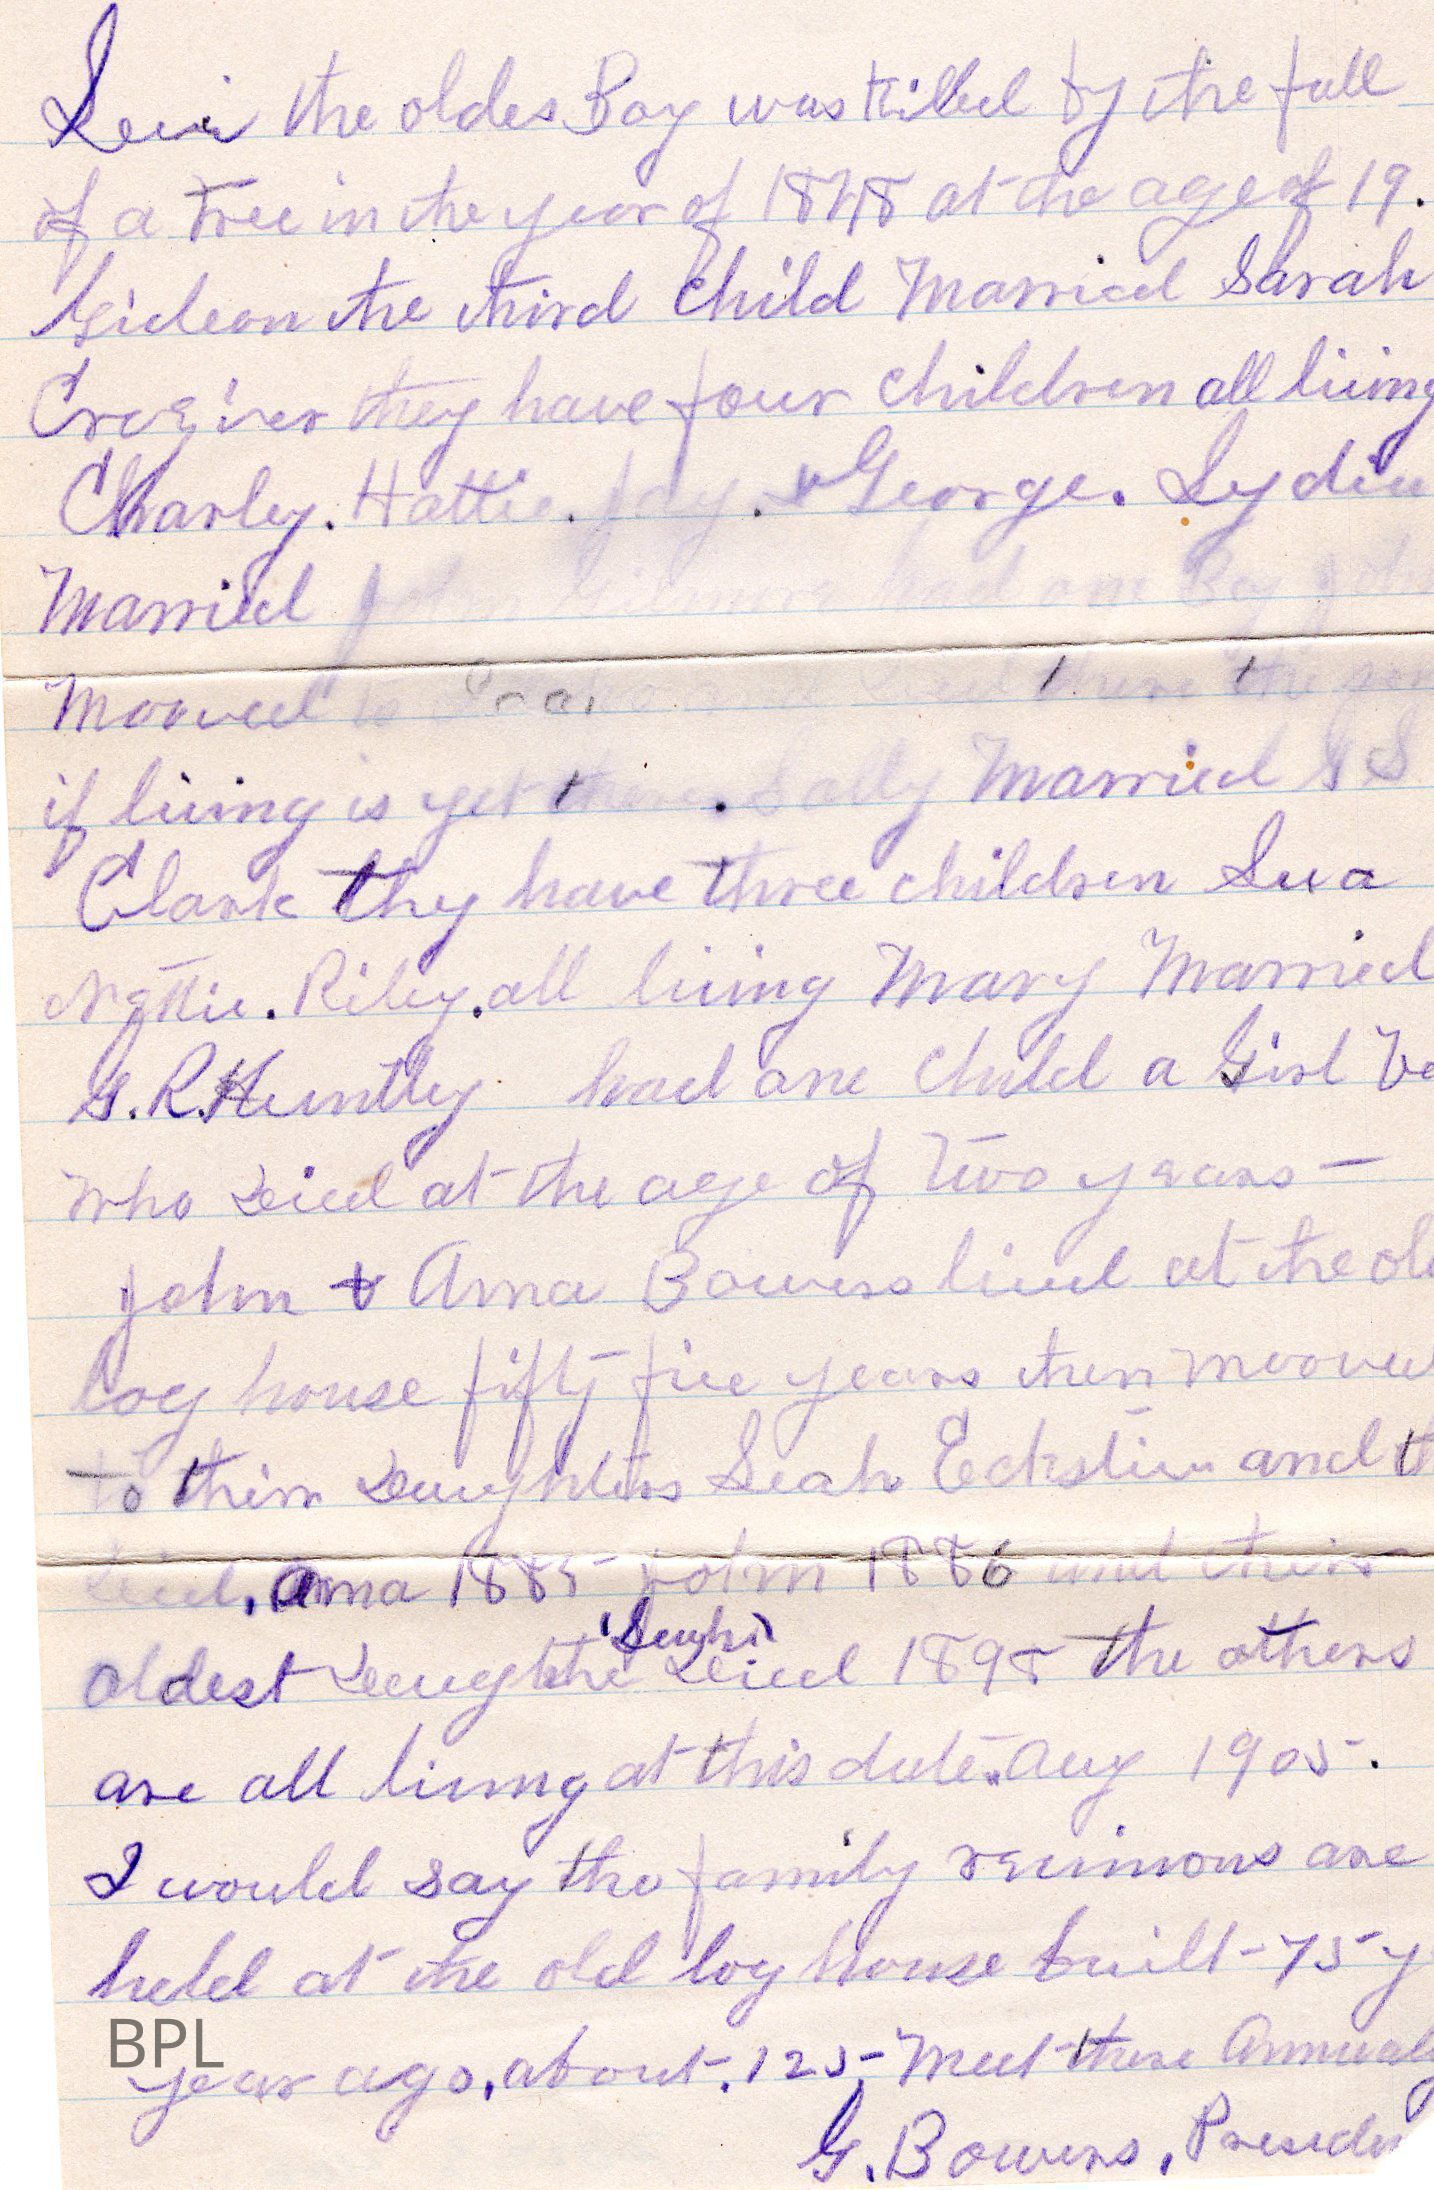 Levi the oldes Boy was killed by the fall
of a Tree in the year of 1848 at the age of 19.
Gideon the third Child Married Sarah
they have four children all living
Charley. Hattie. Jay. & George. Lydia
Married John had one Boy John
Mooved to there the
if living is yet there. Sally Married G S
Clark they have three children
Nettie. Riley. all living Mary Married
G. R. Huntley had one Child a Girl
Who Deied at the age of Two years —
John & Ama Bowers lived at the old
log house fifty five years then mooved
to their Daughters Leah Eckstien and
Deied. Ama 1885 John 1886 and their
oldest Deied 1898 the others
are all living at this date. Aug 1905.
I would say the family reunions are
held at the old log house built 75 y
year ago. about. 125 Meet there Annualy
G. Bowers, Presiden
BPL